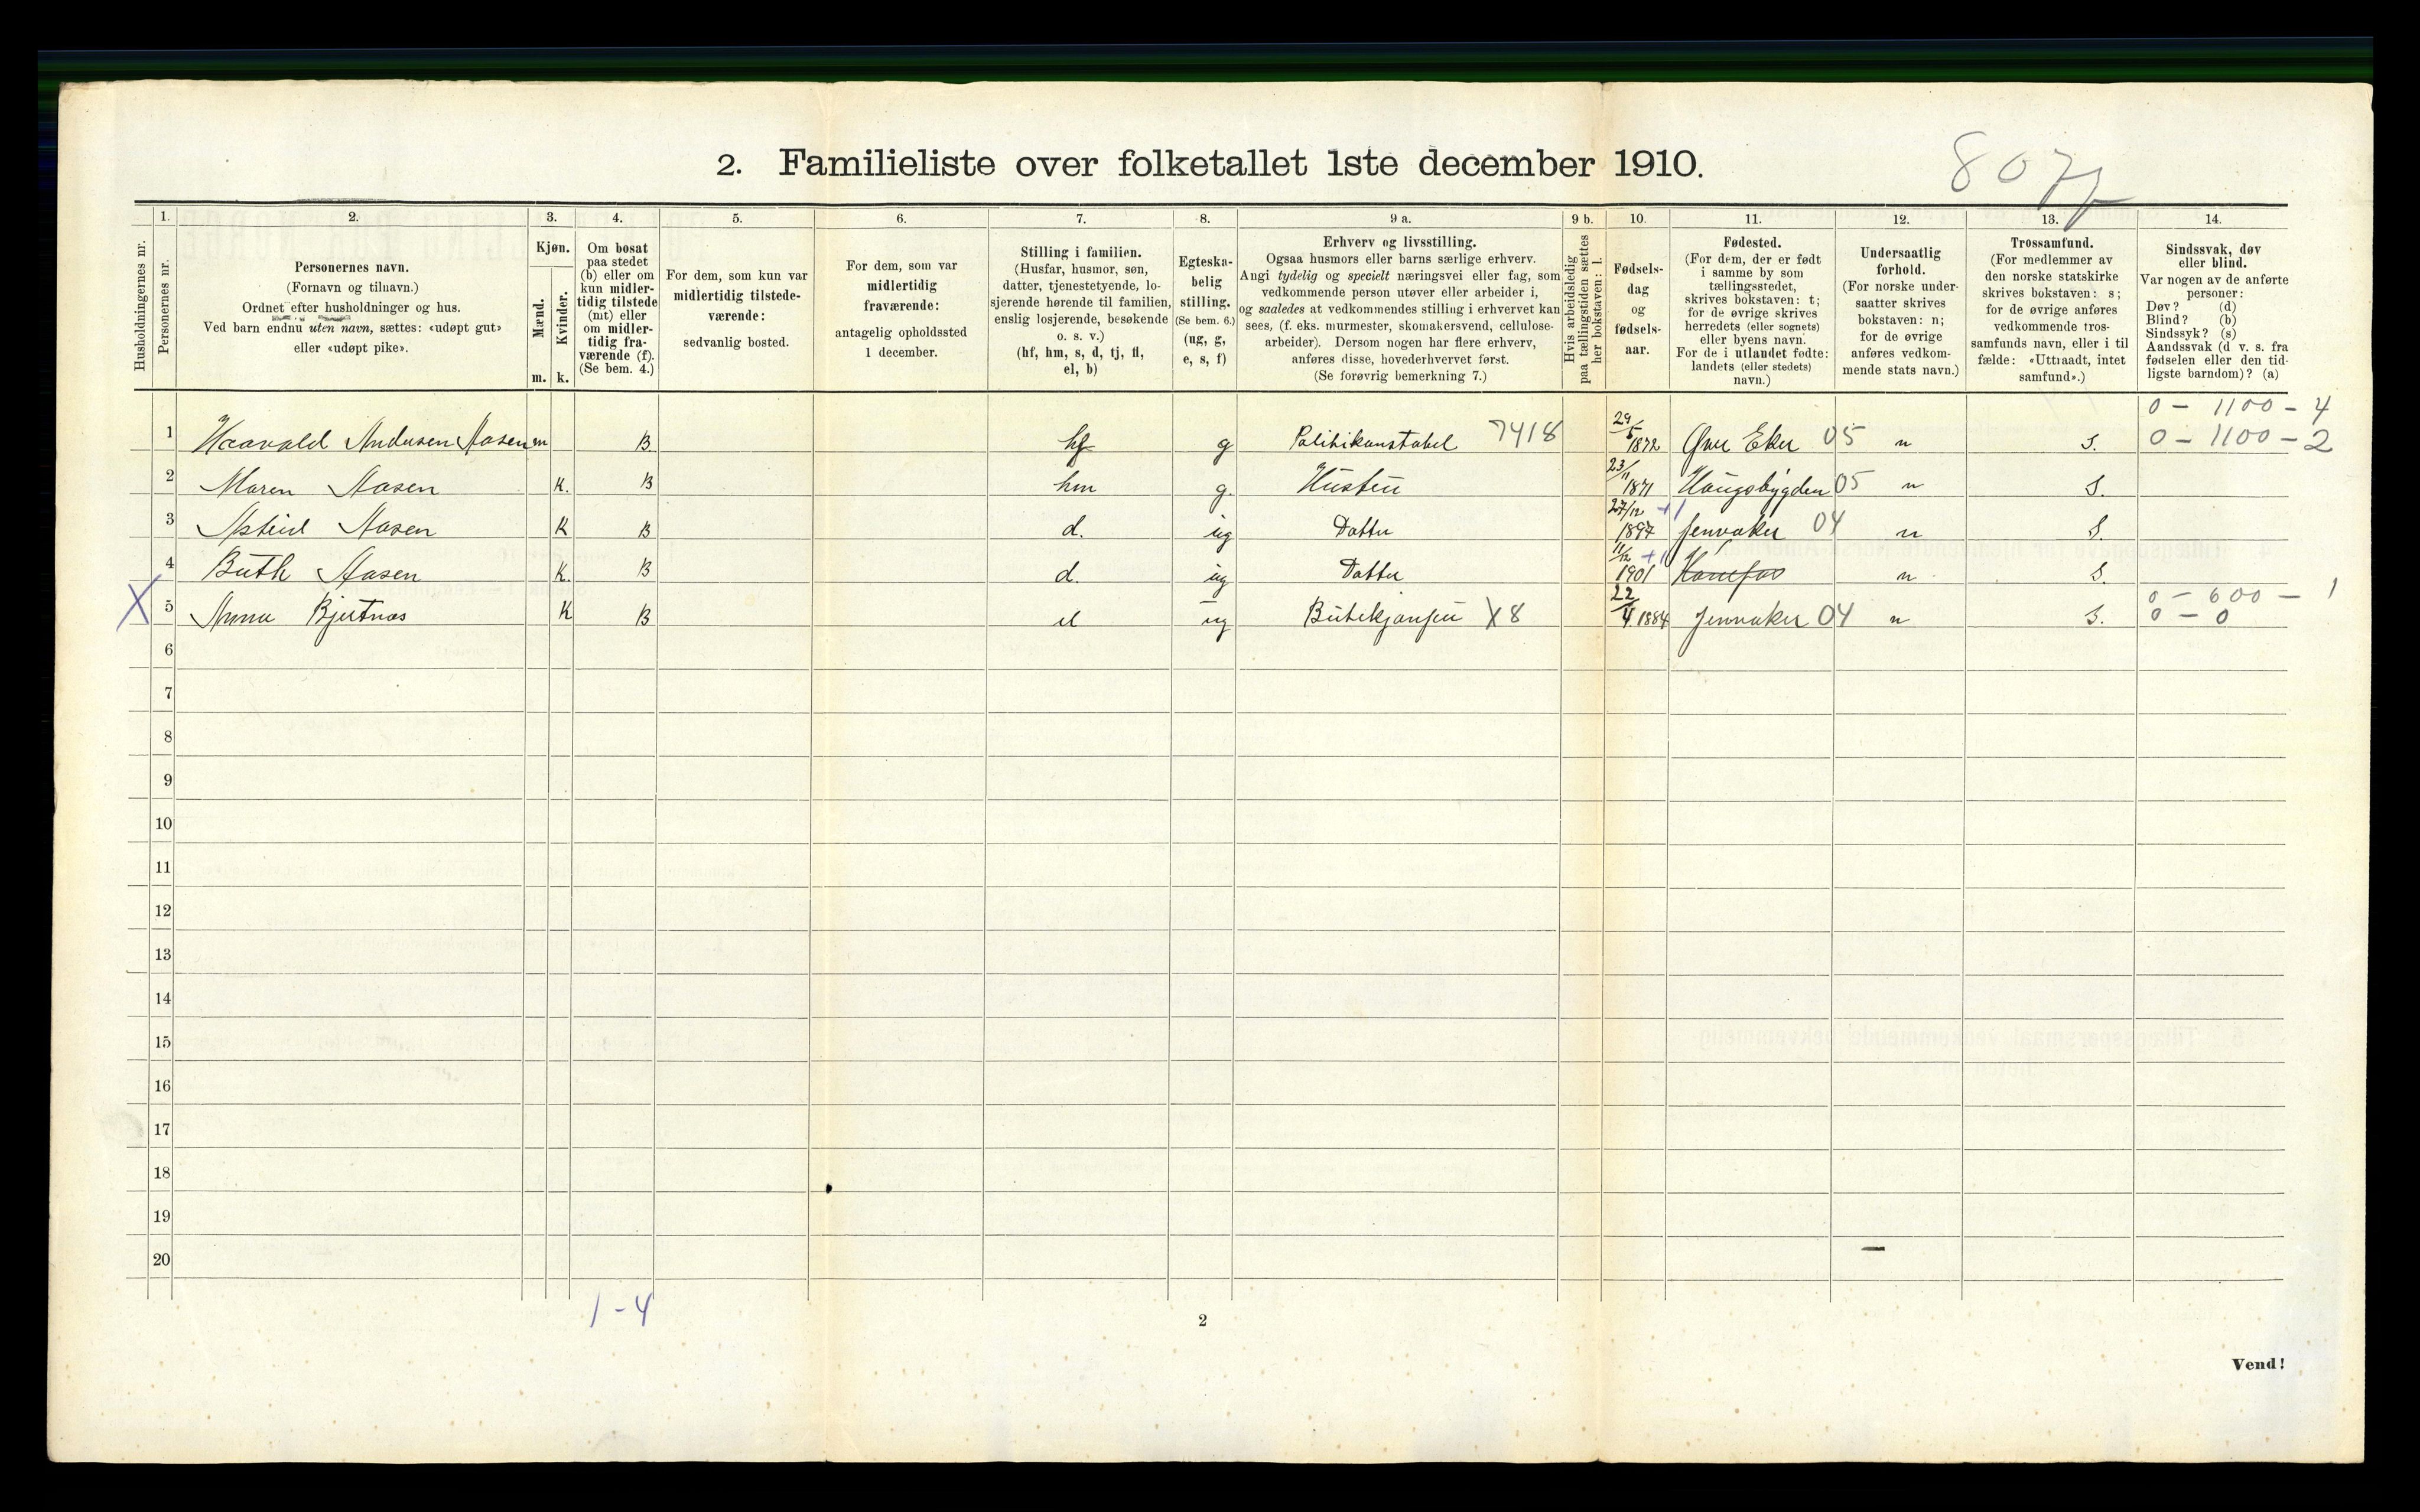 2. Familieliste over folketallet 1ste december 1910.
8077
Husholdningernes nr.
1.
Personernes nr.
2.
Personernes navn.
(Fornavn og tilnavn.)
Ordnet efter husholdninger og hus.
Ved barn endnu uten navn, sættes: «udøpt gut»
eller «udøpt pike».
3.
Kjøn.
Mænd.
Kvinder.
m. k.
4.
Om bosat
paa stedet
(b) eller om
kun midler-
tidig tilstede
(mt) eller
om midler-
tidig fra-
værende (f).
(Se bem. 4.)
5.
For dem, som kun var
midlertidig tilstede-
værende:
sedvanlig bosted.
6.
For dem, som var
midlertidig
fraværende:
antagelig opholdssted
1 december.
7.
Stilling i familien.
(Husfar, husmor, søn,
datter, tjenestetyende, lo-
sjerende hørende til familien,
enslig losjerende, besøkende
o. s. v.)
(hf, hm, s, d, tj, fl,
el, b)
8.
Egteska-
belig
stilling.
(Se bem. 6.)
(ug, g,
e, s, f)
9 a.
Erhverv og livsstilling.
Ogsaa husmors eller barns særlige erhverv.
Angi tydelig og specielt næringsvei eller fag, som
vedkommende person utøver eller arbeider i,
og saaledes at vedkommendes stilling i erhvervet kan
sees, (f. eks. murmester, skomakersvend, cellulose-
arbeider). Dersom nogen har flere erhverv,
anføres disse, hovederhvervet først.
(Se forøvrig bemerkning 7.)
9 b.
Hvis arbeidsledig
paa tællingstiden sættes
her bokstaven: l.
10.
Fødsels-
dag
og
fødsels-
aar.
11.
Fødested.
(For dem, der er født
i samme by som
tællingsstedet,
skrives bokstaven: t;
for de øvrige skrives
herredets (eller sognets)
eller byens navn.
For de i utlandet fødte:
landets (eller stedets)
navn.)
12.
Undersaatlig
forhold.
(For norske under-
saatter skrives
bokstaven: n;
for de øvrige
anføres vedkom-
mende stats navn.)
13.
Trossamfund.
(For medlemmer av
den norske statskirke
skrives bokstaven: s;
for de øvrige anføres
vedkommende tros-
samfunds navn, eller i til
fælde: «Uttraadt, intet
samfund».)
14.
Sindssvak, døv
eller blind.
Var nogen av de anførte
personer:
Døv? (d)
Blind? (b)
Sindssyk? (s)
Aandssvak (d v. s. fra
fødselen eller den tid-
ligste barndom)? (a)
0 - 1100 - 4
1 Haavald Andersen Aasen m B. hf g Politikonstabel 7418 29/5 1872 Øvre Eker 05 n S. 0 - 1100 - 2
2 Maren Aasen K. B hm g. Hustru 23/11 1871 Haugsbygden 05 n S.
3 Astrid Aasen K B d. ug Datter 27/12 +1 1897 Jevnaker 04 n S.
4 Buth Aasen K. B d. ug Datter 11/12 +1 1901 Hønefos n S.
0 - 600 - 1
X 5 Anna Bjertnæs K B el ug Butikjomfru X8 22/4 1884 Jevnaker 04 n S. 0 - 0
6
7
8
9
10
11
12
13
14
15
16
17
18
19
20
1 - 4
2
Vend!